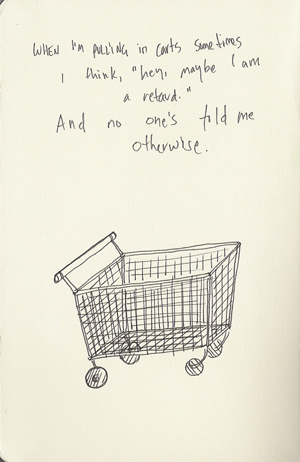 WHEN I'm pulling in carts sometimes
I think, "hey, maybe I am
a retard."
And no one's told me
otherwise.